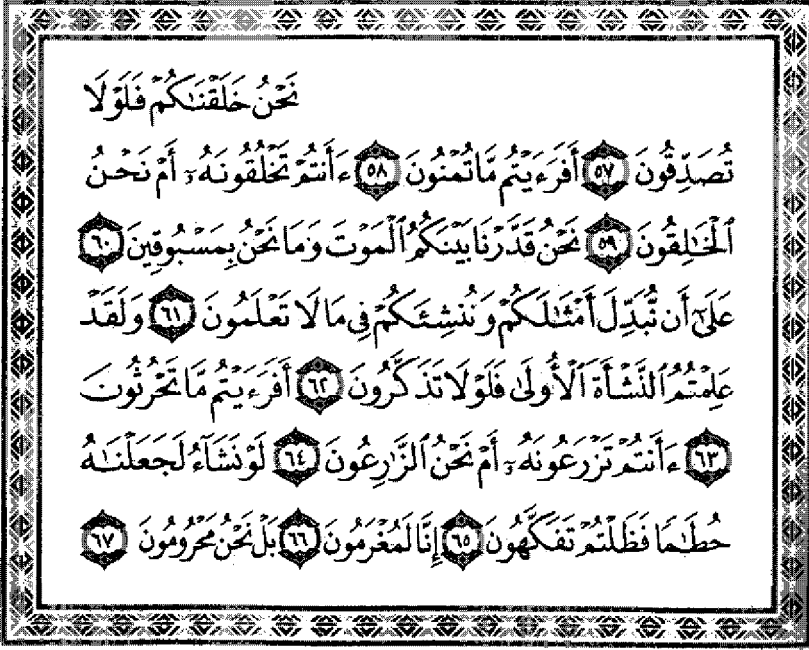 نَحْنُ خَلَقْنَـٰكُمْ فَلَوْلَا
تُصَدِّقُونَ ﴿٥٧﴾ أَفَرَءَيْتُم مَّا تُمْنُونَ ﴿٥٨﴾ ءَأَنتُمْ تَخْلُقُونَهُۥٓ أَمْ نَحْنُ
ٱلْخَـٰلِقُونَ ﴿٥٩﴾ نَحْنُ قَدَّرْنَا بَيْنَكُمُ ٱلْمَوْتَ وَمَا نَحْنُ بِمَسْبُوقِينَ ﴿٦٠﴾
عَلَىٰٓ أَن نُّبَدِّلَ أَمْثَـٰلَكُمْ وَنُنشِئَكُمْ فِى مَا لَا تَعْلَمُونَ ﴿٦١﴾ وَلَقَدْ
عَلِمْتُمُ ٱلنَّشْأَةَ ٱلْأُولَىٰ فَلَوْلَا تَذَكَّرُونَ ﴿٦٢﴾ أَفَرَءَيْتُم مَّا تَحْرُثُونَ
﴿٦٣﴾ ءَأَنتُمْ تَزْرَعُونَهُۥٓ أَمْ نَحْنُ ٱلزَّٰرِعُونَ ﴿٦٤﴾ لَوْ نَشَآءُ لَجَعَلْنَـٰهُ
حُطَـٰمًا فَظَلْتُمْ تَفَكَّهُونَ ﴿٦٥﴾ إِنَّا لَمُغْرَمُونَ ﴿٦٦﴾ بَلْ نَحْنُ مَحْرُومُونَ ﴿٦٧﴾